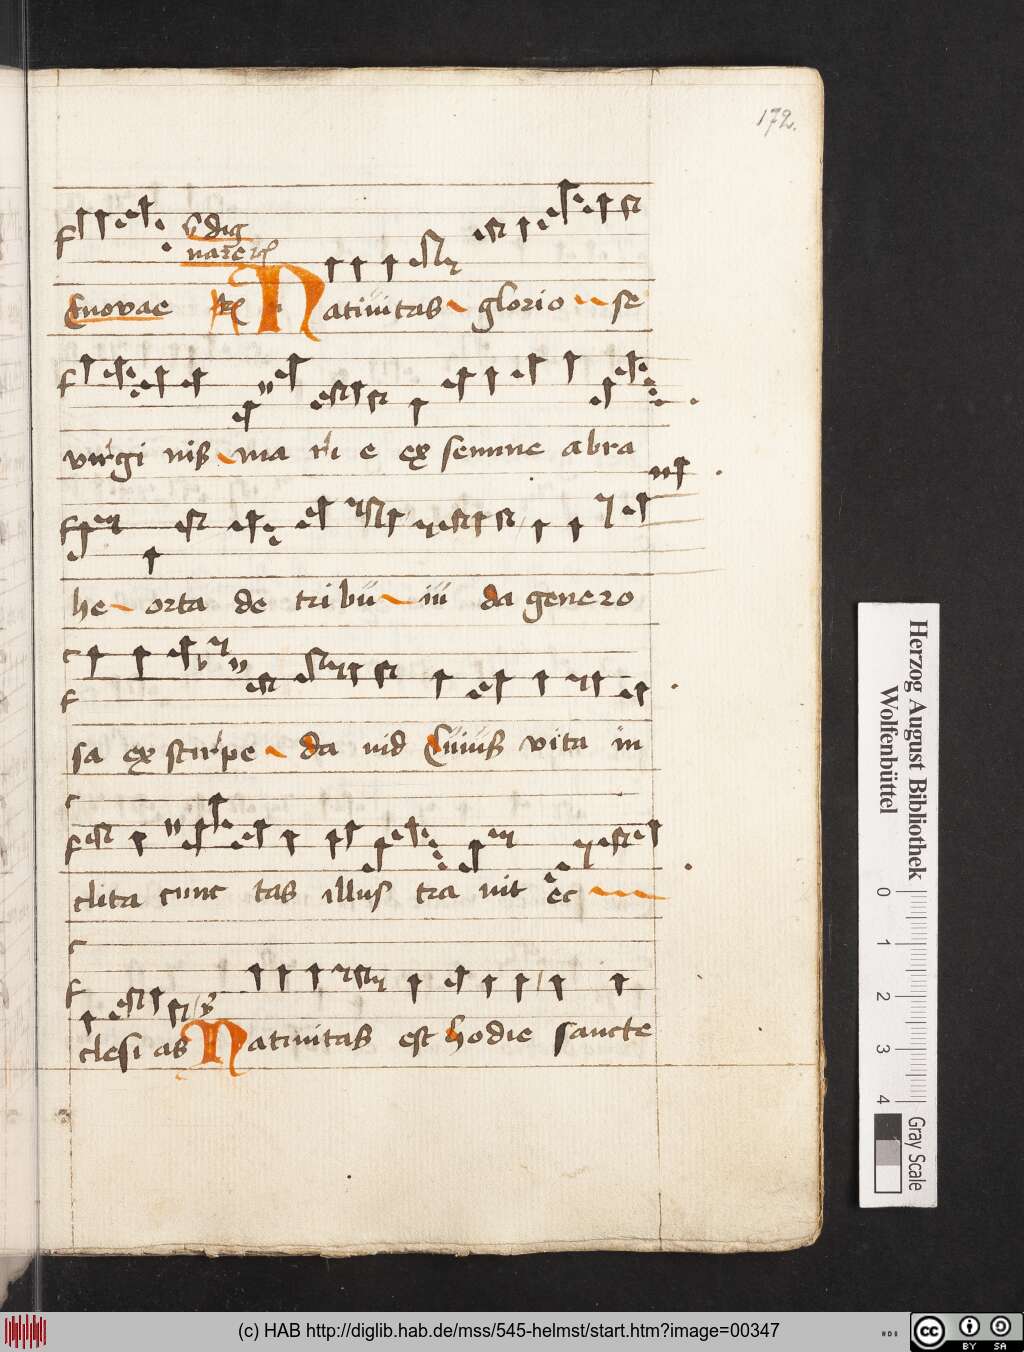 172.
Euouae Nativitas glorio se
virgi nis ma ri e ex semine abra
he orta de tribu iu da genero
sa ex stirpe da uid Cuius vita in
clita cunc tas illus tra uit ec
clesi as Natiuitas est hodie sancte
Herzog August Bibliothek
Wolfenbüttel
0 1 2 3 4
Gray Scale
(c) HAB http://diglib.hab.de/mss/545-helmst/start.htm?image=00347
cc BY SA